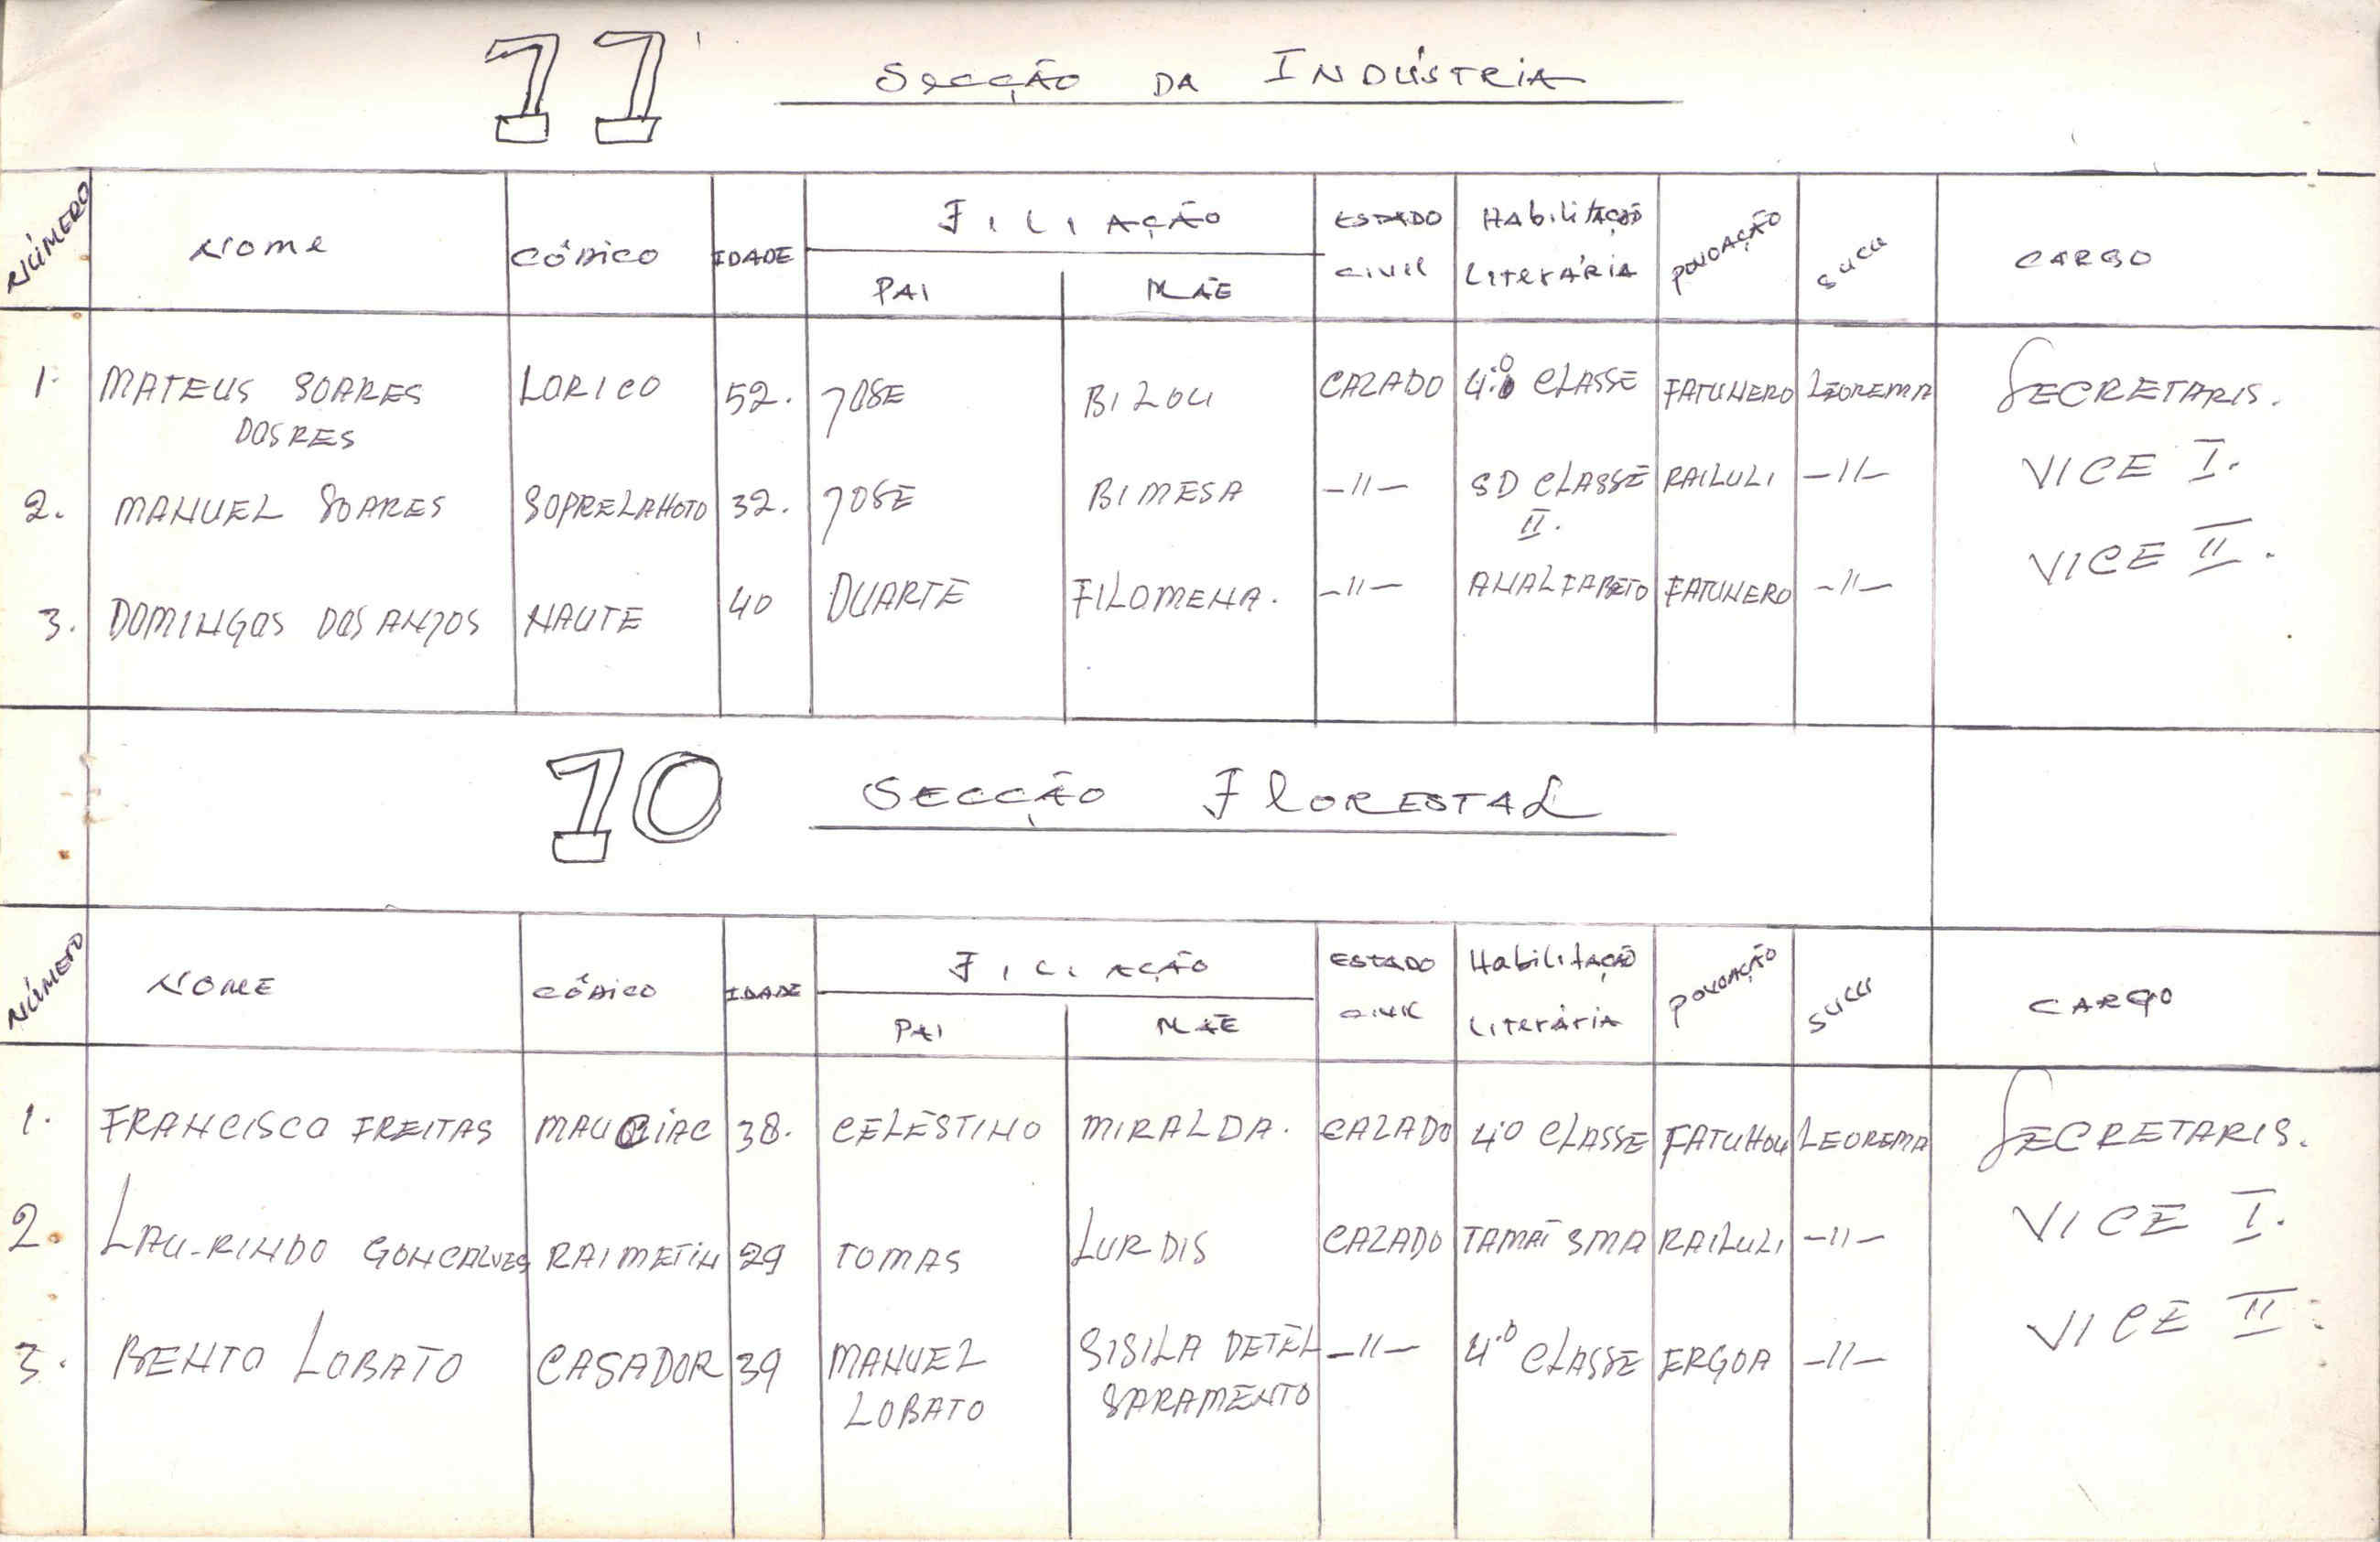 11 SECÇÃO DA INDÚSTRIA
NÚMERO NOME CÓDICO IDADE FILIAÇÃO PAI MÃE ESTADO CIVIL HABILITAÇÃO LITERÁRIA POVOAÇÃO SUCU CARGO
1. MATEUS SOARES DOSRES LORICO 52. JOSE BILOU CAZADO 4.º CLASSE FATUNERO LEOREMA SECRETARIS.
2. MANUEL SOARES SOPRELAHOTO 32. JOSE BIMESA -11- SD CLASSE II. RAILULI -11- VICE I.
3. DOMINGOS DOS ANJOS NAUTE 40 DUARTE FILOMENA. -11- ANALFABETO FATUNERO -11- VICE II.
10 SECÇÃO FLORESTAL
NÚMERO NOME CÓDICO IDADE FILIAÇÃO PAI MÃE ESTADO CIVIL HABILITAÇÃO LITERÁRIA POVOAÇÃO SUCU CARGO
1. FRANCISCO FREITAS 38. CELESTINO MIRALDA. CAZADO 4º CLASSE FATUHOU LEOREMA SECRETARIS.
2. LAU-RINDO GONCALVES RAIMETIN 29 TOMAS LURDIS CAZADO TAMAT SMA RAILULI -11- VICE I.
3. BENTO LOBATO CASADOR 39 MANUEL LOBATO SISILA DETEL SARAMENTO -11- 4.º CLASSE ERGOA -11- VICE II.